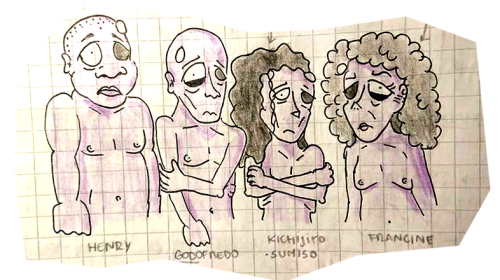 HENRY
GODOFREDO
KICHIJIRO
SUMISO
FRANCINE